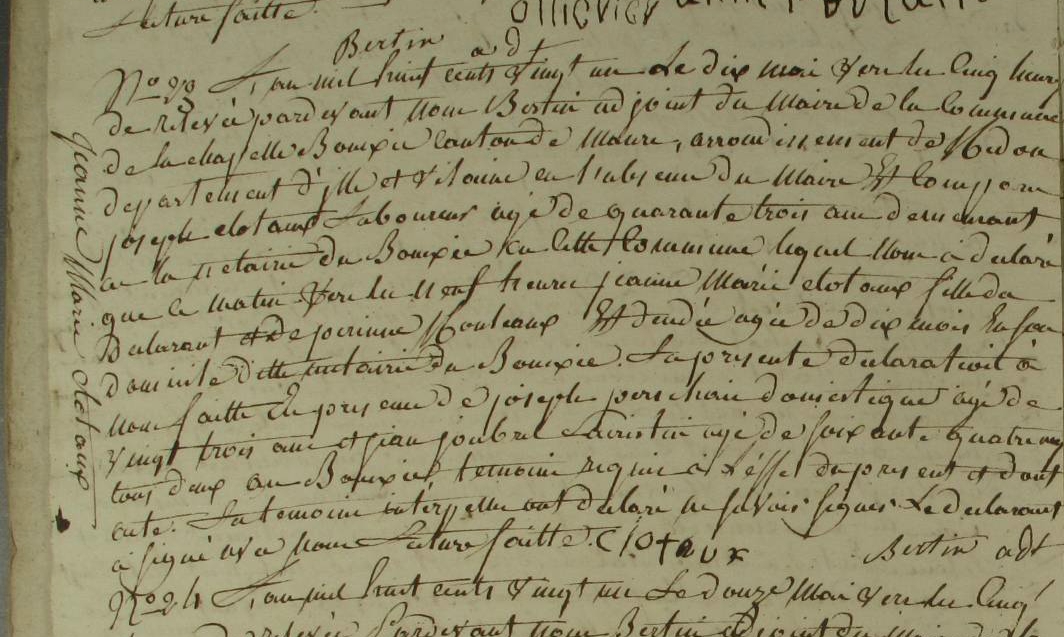 lecture faitte.
Bertin adt
No 23 L'an mil huit cents vingt un Le dix mai vers les Cinq heures
de relevée pardevant nous Bertin adjoint du Maire de la Commune
de la chapelle Bouexic Canton de Maure, arrondissement de Redon
departement d'ille et vilaine en l'absence du Maire Est Comparu
joseph clotaux Laboureur agé de quarante trois ans demeurant
a la metairie du Bouexic en cette Commune lequel nous a declaré
que ce matin vers les neuf heures jeanne Marie clotaux fille du
declarant et de perinne Est decedée agée de dix mois En son
domicile ditte metairie du Bouexic. La presente declaration a
nous faitte En presence de joseph domestique agé de
vingt trois ans et jean joubrel Sacristin agé de soixante quatre ans
tous deux au Bouexic, temoins requis a l'effet du present et dont
acte. Les temoins interpelle ont declaré ne savoir signer Le declarant
a signé avec nous Lecture faitte. Clotaux Bertin adt
No 24 L'an mil huit cents vingt un Le douze Mai vers les Cinq
de relevée Pardevant nous Bertin adjoint du Maire de la
Jeanne Marie clotaux